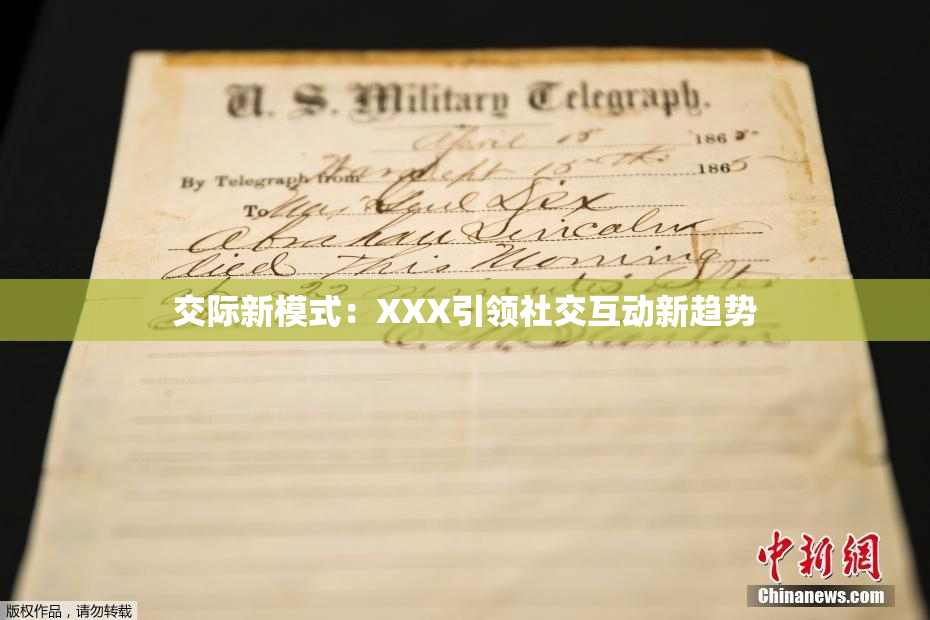 U. S. Military Telegraph.
April 15 1865
By Telegraph from War Dept 15th 1865
To Maj Genl Dix
Abraham Lincoln
died This Morning
22 minutes after
交际新模式：XXX引领社交互动新趋势
E. M. Stanton
中新网
Chinanews.com
版权作品，请勿转载